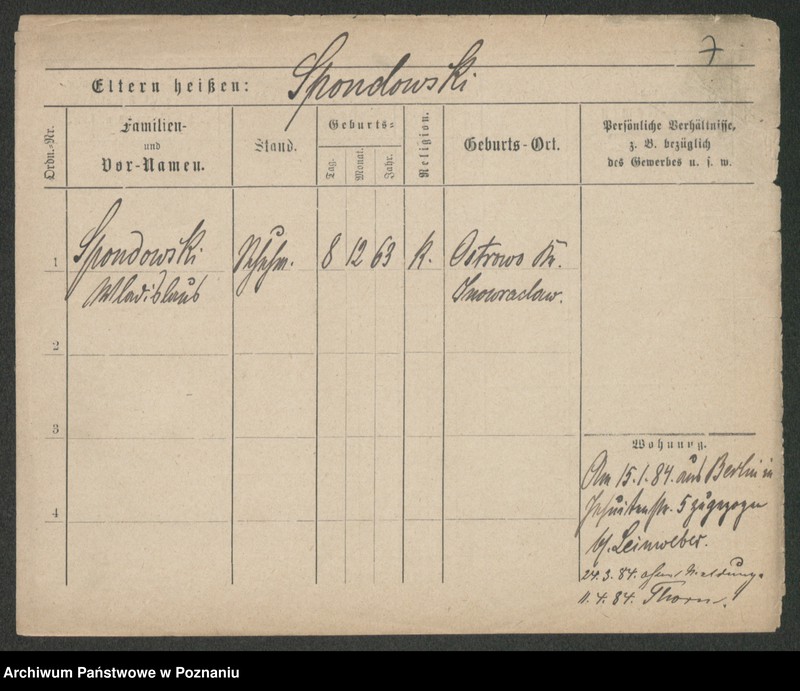 7
Eltern heißen: Spondowski
Ordn.-Nr.
Familien-
und
Vor-Namen.
Stand.
Geburts-
Tag.
Monat.
Jahr.
Religion.
Geburts-Ort.
Persönliche Verhältnisse,
z. B. bezüglich
des Gewerbes u. s. w.
1 Spondowski 8 12 63 k. Ostrowo Kr.
Wladislaus Inowraclaw.
2
3
4
Wohnung.
Am 15.1.84. aus Berlin in
Jesuitenstr. 5 zugezogen
b/. Leinweber.
24.3.84. ohne Meldung.
11.4.84. Thorn.
Archiwum Państwowe w Poznaniu